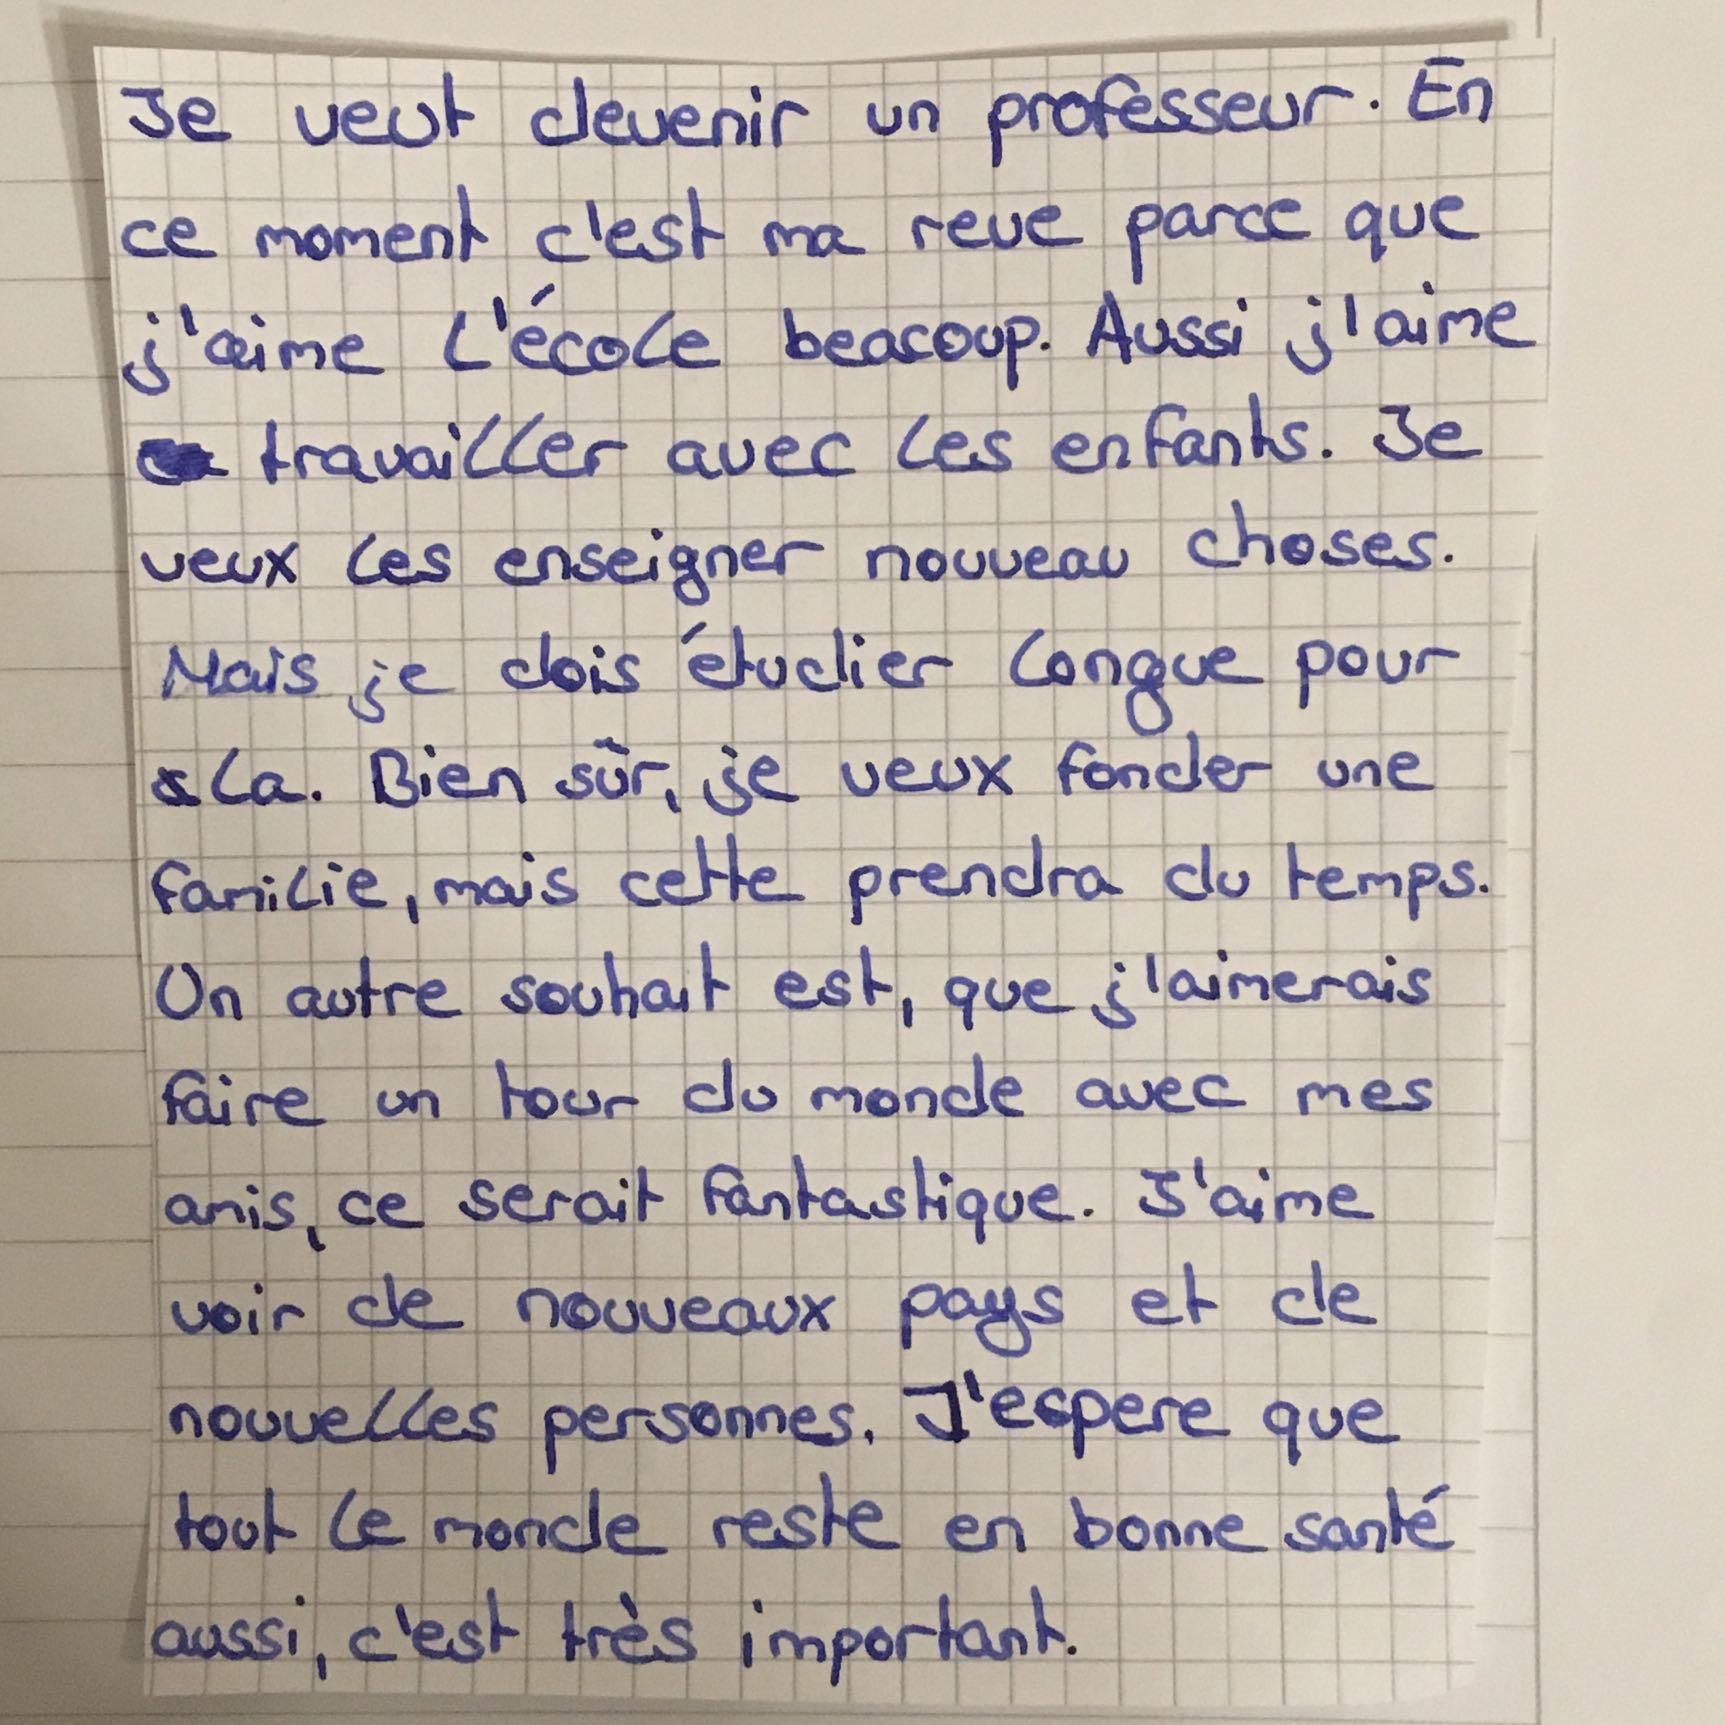 Je veut devenir un professeur. En
ce moment c'est ma reve parce que
j'aime l'école beacoup. Aussi j'aime
travailler avec les enfants. Je
veux les enseigner nouveau choses.
Mais je dois étudier longue pour
la. Bien sûr, je veux fonder une
familie, mais cette prendra du temps.
Un autre souhait est, que j'aimerais
faire un tour du monde avec mes
amis, ce serait fantastique. J'aime
voir de nouveaux pays et de
nouvelles personnes. J'espere que
tout le monde reste en bonne santé
aussi, c'est très important.